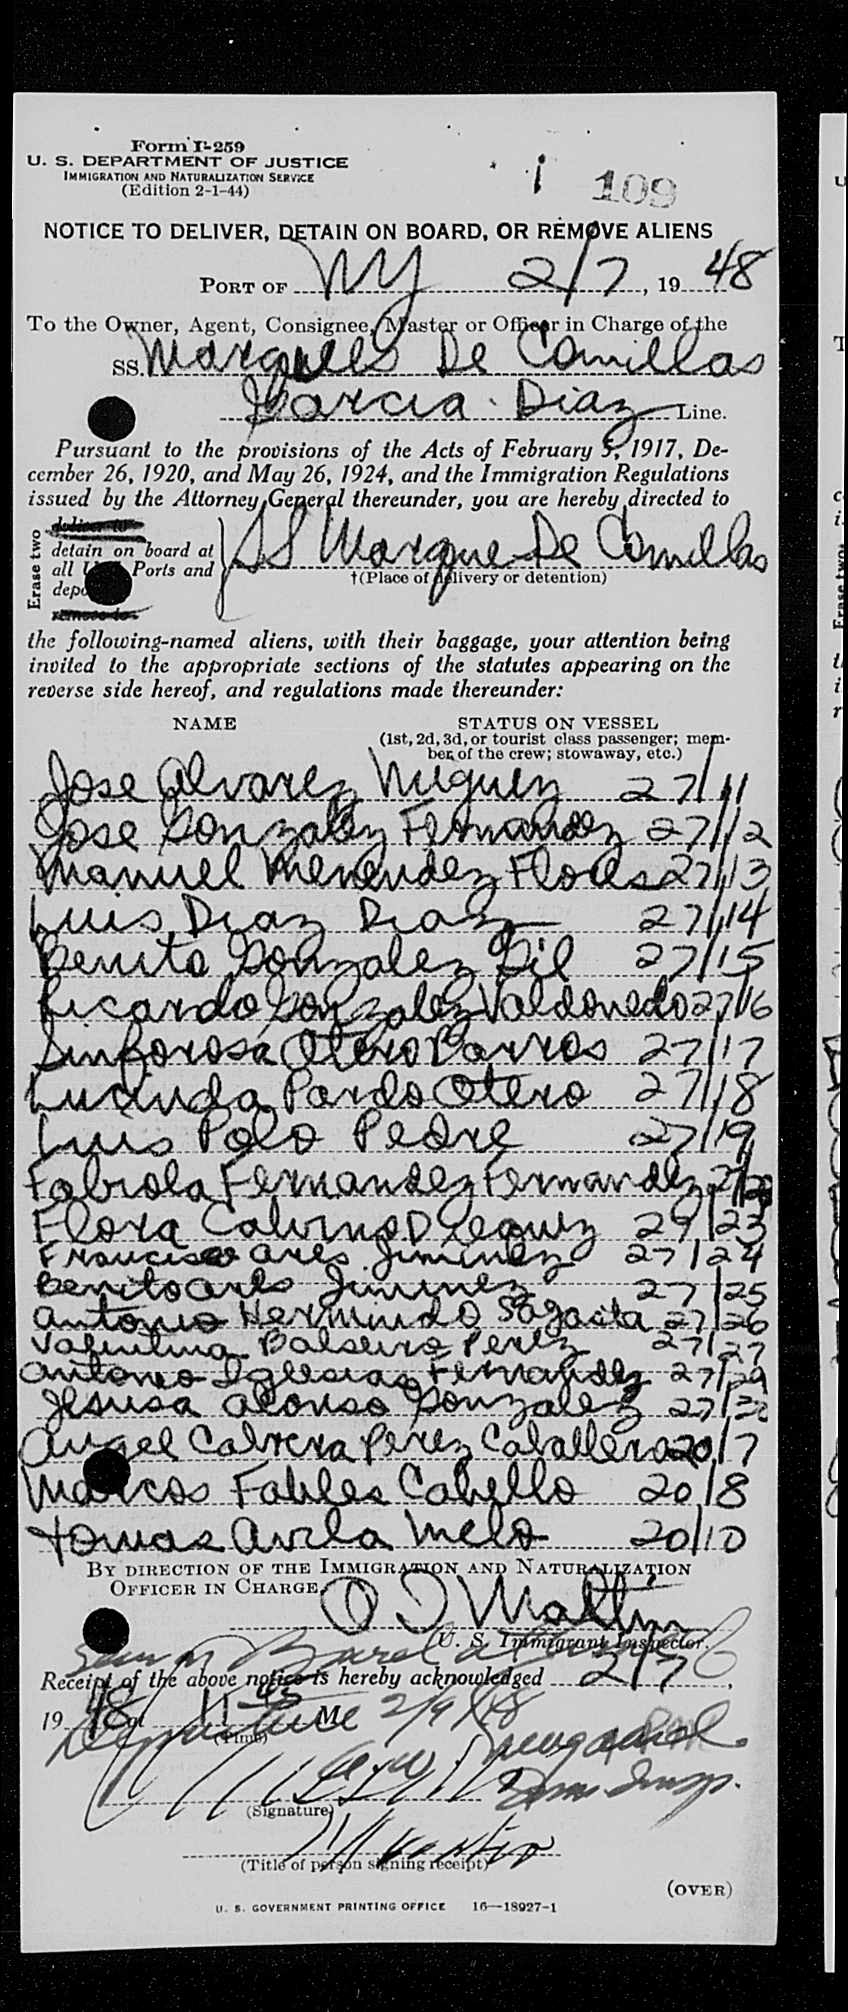 Form I-259
U. S. DEPARTMENT OF JUSTICE
IMMIGRATION AND NATURALIZATION SERVICE
(Edition 2-1-44)
109
NOTICE TO DELIVER, DETAIN ON BOARD, OR REMOVE ALIENS
PORT OF NY 2/7, 1948
To the Owner, Agent, Consignee, Master or Officer in Charge of the
SS. Marques De Comillas
Garcia-Diaz Line.
Pursuant to the provisions of the Acts of February 5, 1917, De-
cember 26, 1920, and May 26, 1924, and the Immigration Regulations
issued by the Attorney General thereunder, you are hereby directed to
Erase two
deliver to
detain on board at
all Ports and
remove to
SS Marque De Comillas
†(Place of delivery or detention)
the following-named aliens, with their baggage, your attention being
invited to the appropriate sections of the statutes appearing on the
reverse side hereof, and regulations made thereunder:
NAME STATUS ON VESSEL
(1st, 2d, 3d, or tourist class passenger; mem-
ber of the crew; stowaway, etc.)
Jose Alvarez Nuguez 27/11
Jose Gonzalez Fernandez 27/12
Manuel Menendez Flores 27/13
Luis Diaz Diaz 27/14
Benito Gonzalez Gil 27/15
Ricardo Gonzalez Valdonedo 27/16
Sinforosa Otero Barros 27/17
Lucinda Pardo Otero 27/18
Luis Polo Pedre 27/19
Fabiola Fernandez Fernandez
Flora Calvino 29/23
Francisco Ares Jiminez 27/24
Benito Ares Jiminez 27/25
Antonio Hermindo Sagasta 27/26
Valentina Balseiro Perez 27/27
Antonio Iglesias Fernandez 27/29
Jesusa Alonso Gonzalez
Angel Cabrera Perez Caballero 20/7
Marcos Fables Cabello 20/8
Tomas Avila Melo 20/10
BY DIRECTION OF THE IMMIGRATION AND NATURALIZATION
OFFICER IN CHARGE.
U. S. Immigrant Inspector.
Receipt of the above notice is hereby acknowledged 2/7,
1948 at 11 M
(Time)
Departure 2/9/48
(Signature)
(Title of person signing receipt)
(OVER)
U. S. GOVERNMENT PRINTING OFFICE 16—18927-1